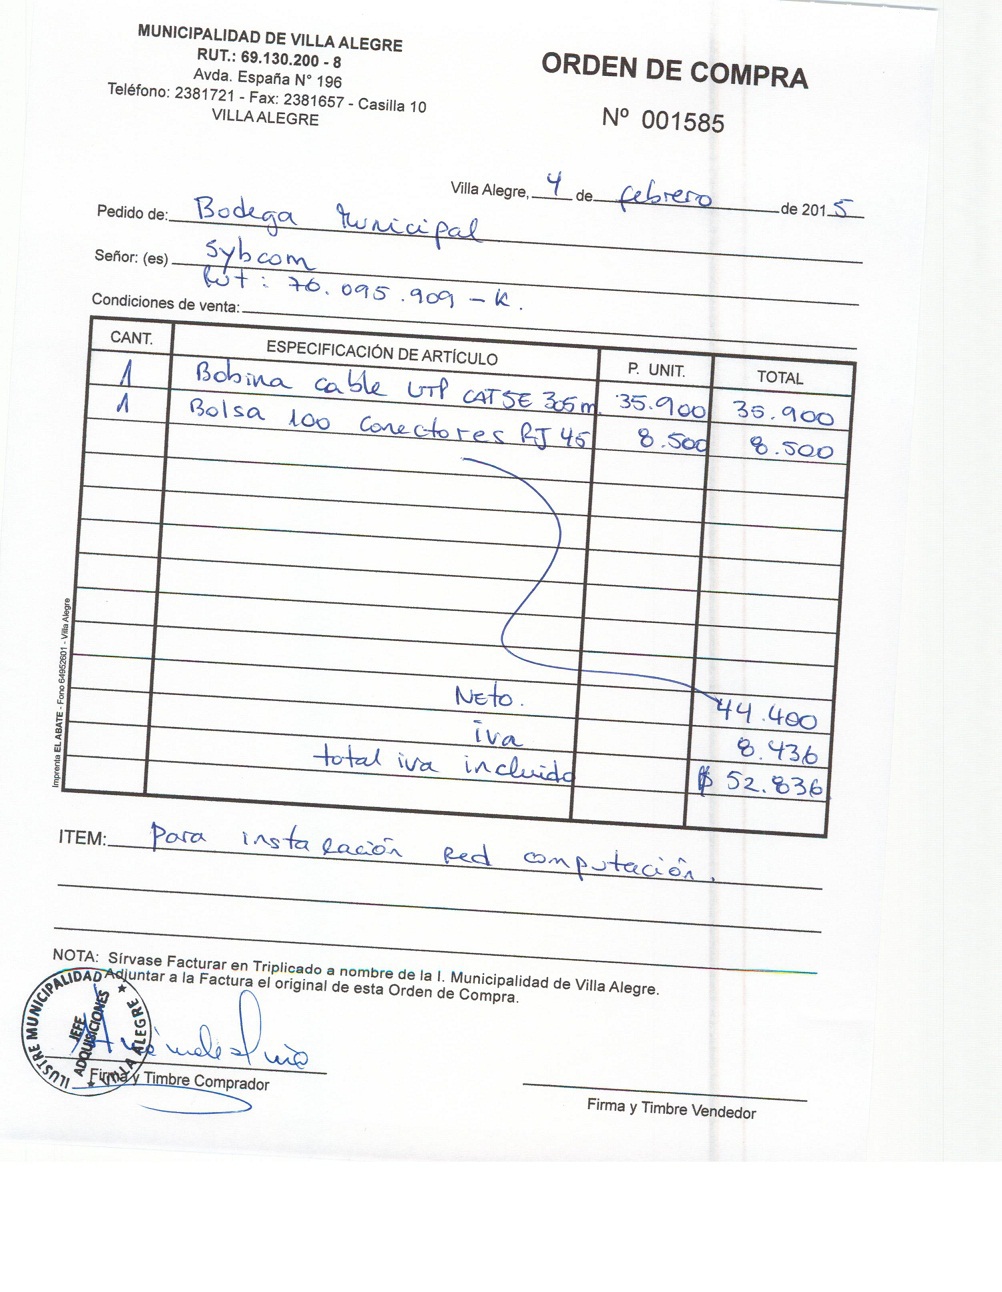 MUNICIPALIDAD DE VILLA ALEGRE
RUT.: 69.130.200 - 8
Avda. España N° 196
Teléfono: 2381721 - Fax: 2381657 - Casilla 10
VILLA ALEGRE
ORDEN DE COMPRA
Nº 001585
Villa Alegre, 4 de febrero de 2015
Pedido de: Bodega Municipal
Señor: (es) Sybcom
Rut : 76.095.909 - K.
Condiciones de venta:
CANT. ESPECIFICACIÓN DE ARTÍCULO P. UNIT. TOTAL
1 Bobina cable UTP CAT5E 305 m. 35.900 35.900
1 Bolsa 100 conectores RJ 45 8.500 8.500
Neto. 44.400
iva 8.436
total iva incluido $ 52.836
Imprenta EL ABATE - Fono 64952601 - Villa Alegre
ITEM: Para instalación Red computación.
NOTA: Sírvase Facturar en Triplicado a nombre de la I. Municipalidad de Villa Alegre.
Adjuntar a la Factura el original de esta Orden de Compra.
ILUSTRE MUNICIPALIDAD
VILLA ALEGRE
JEFE
ADQUISICIONES
Firma y Timbre Comprador
Firma y Timbre Vendedor